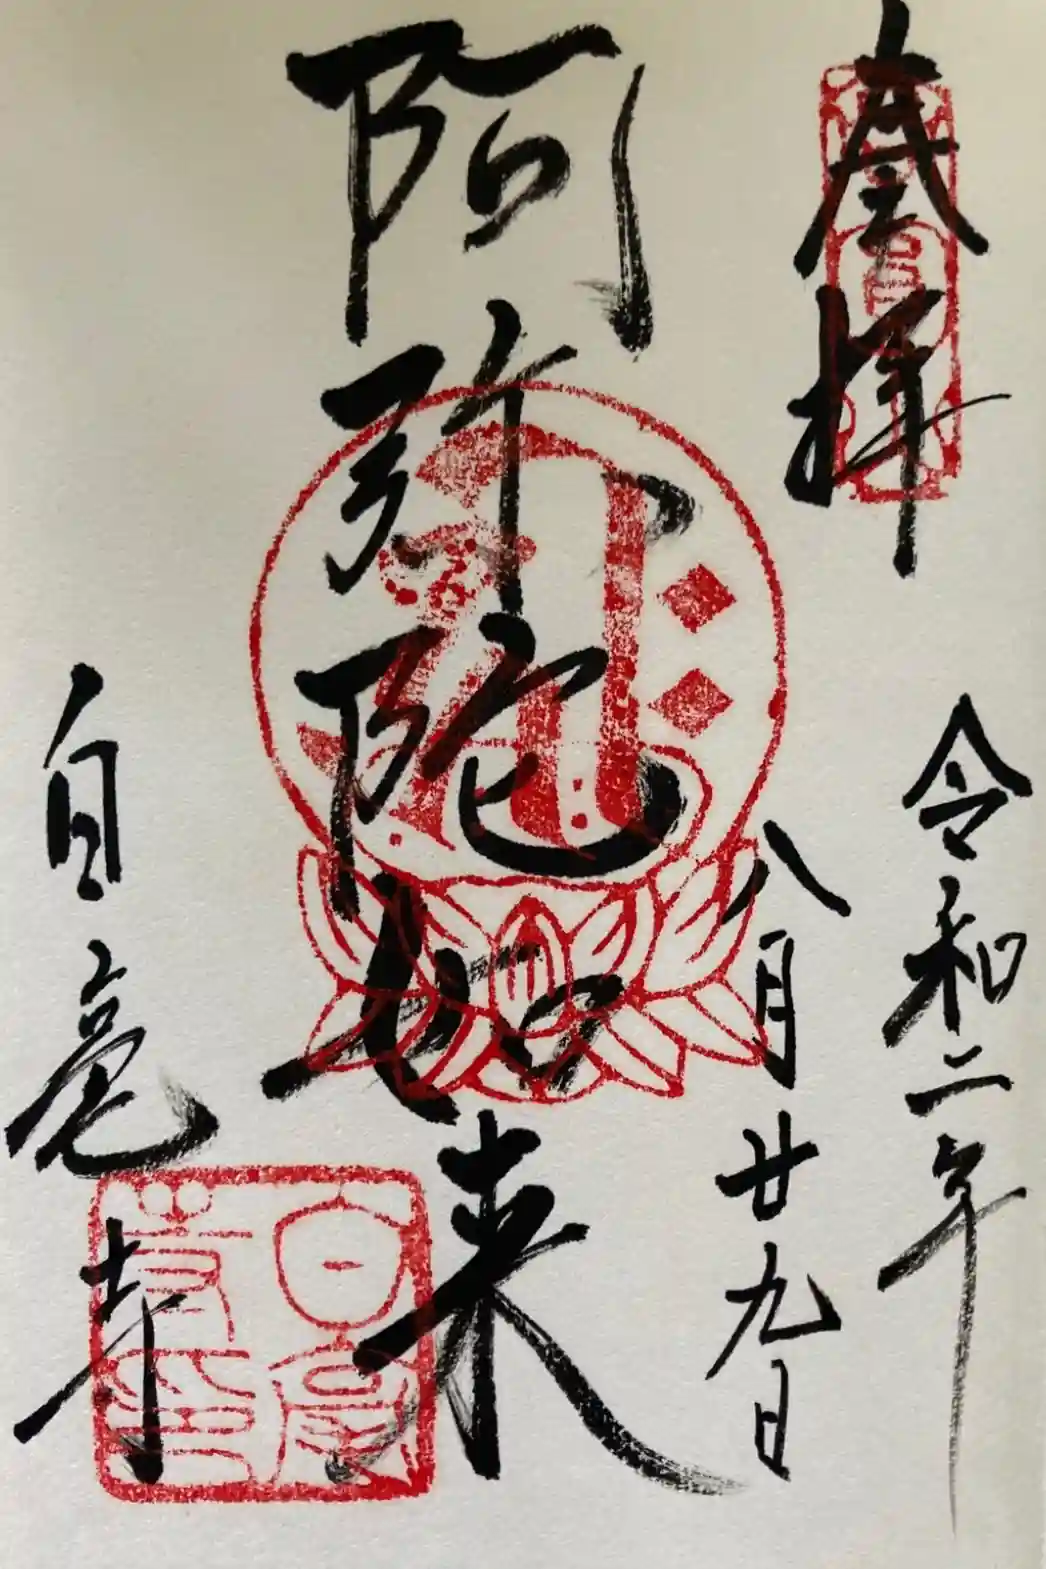 奉拝
令和二年
八月廿九日
阿弥陀如来
白毫寺